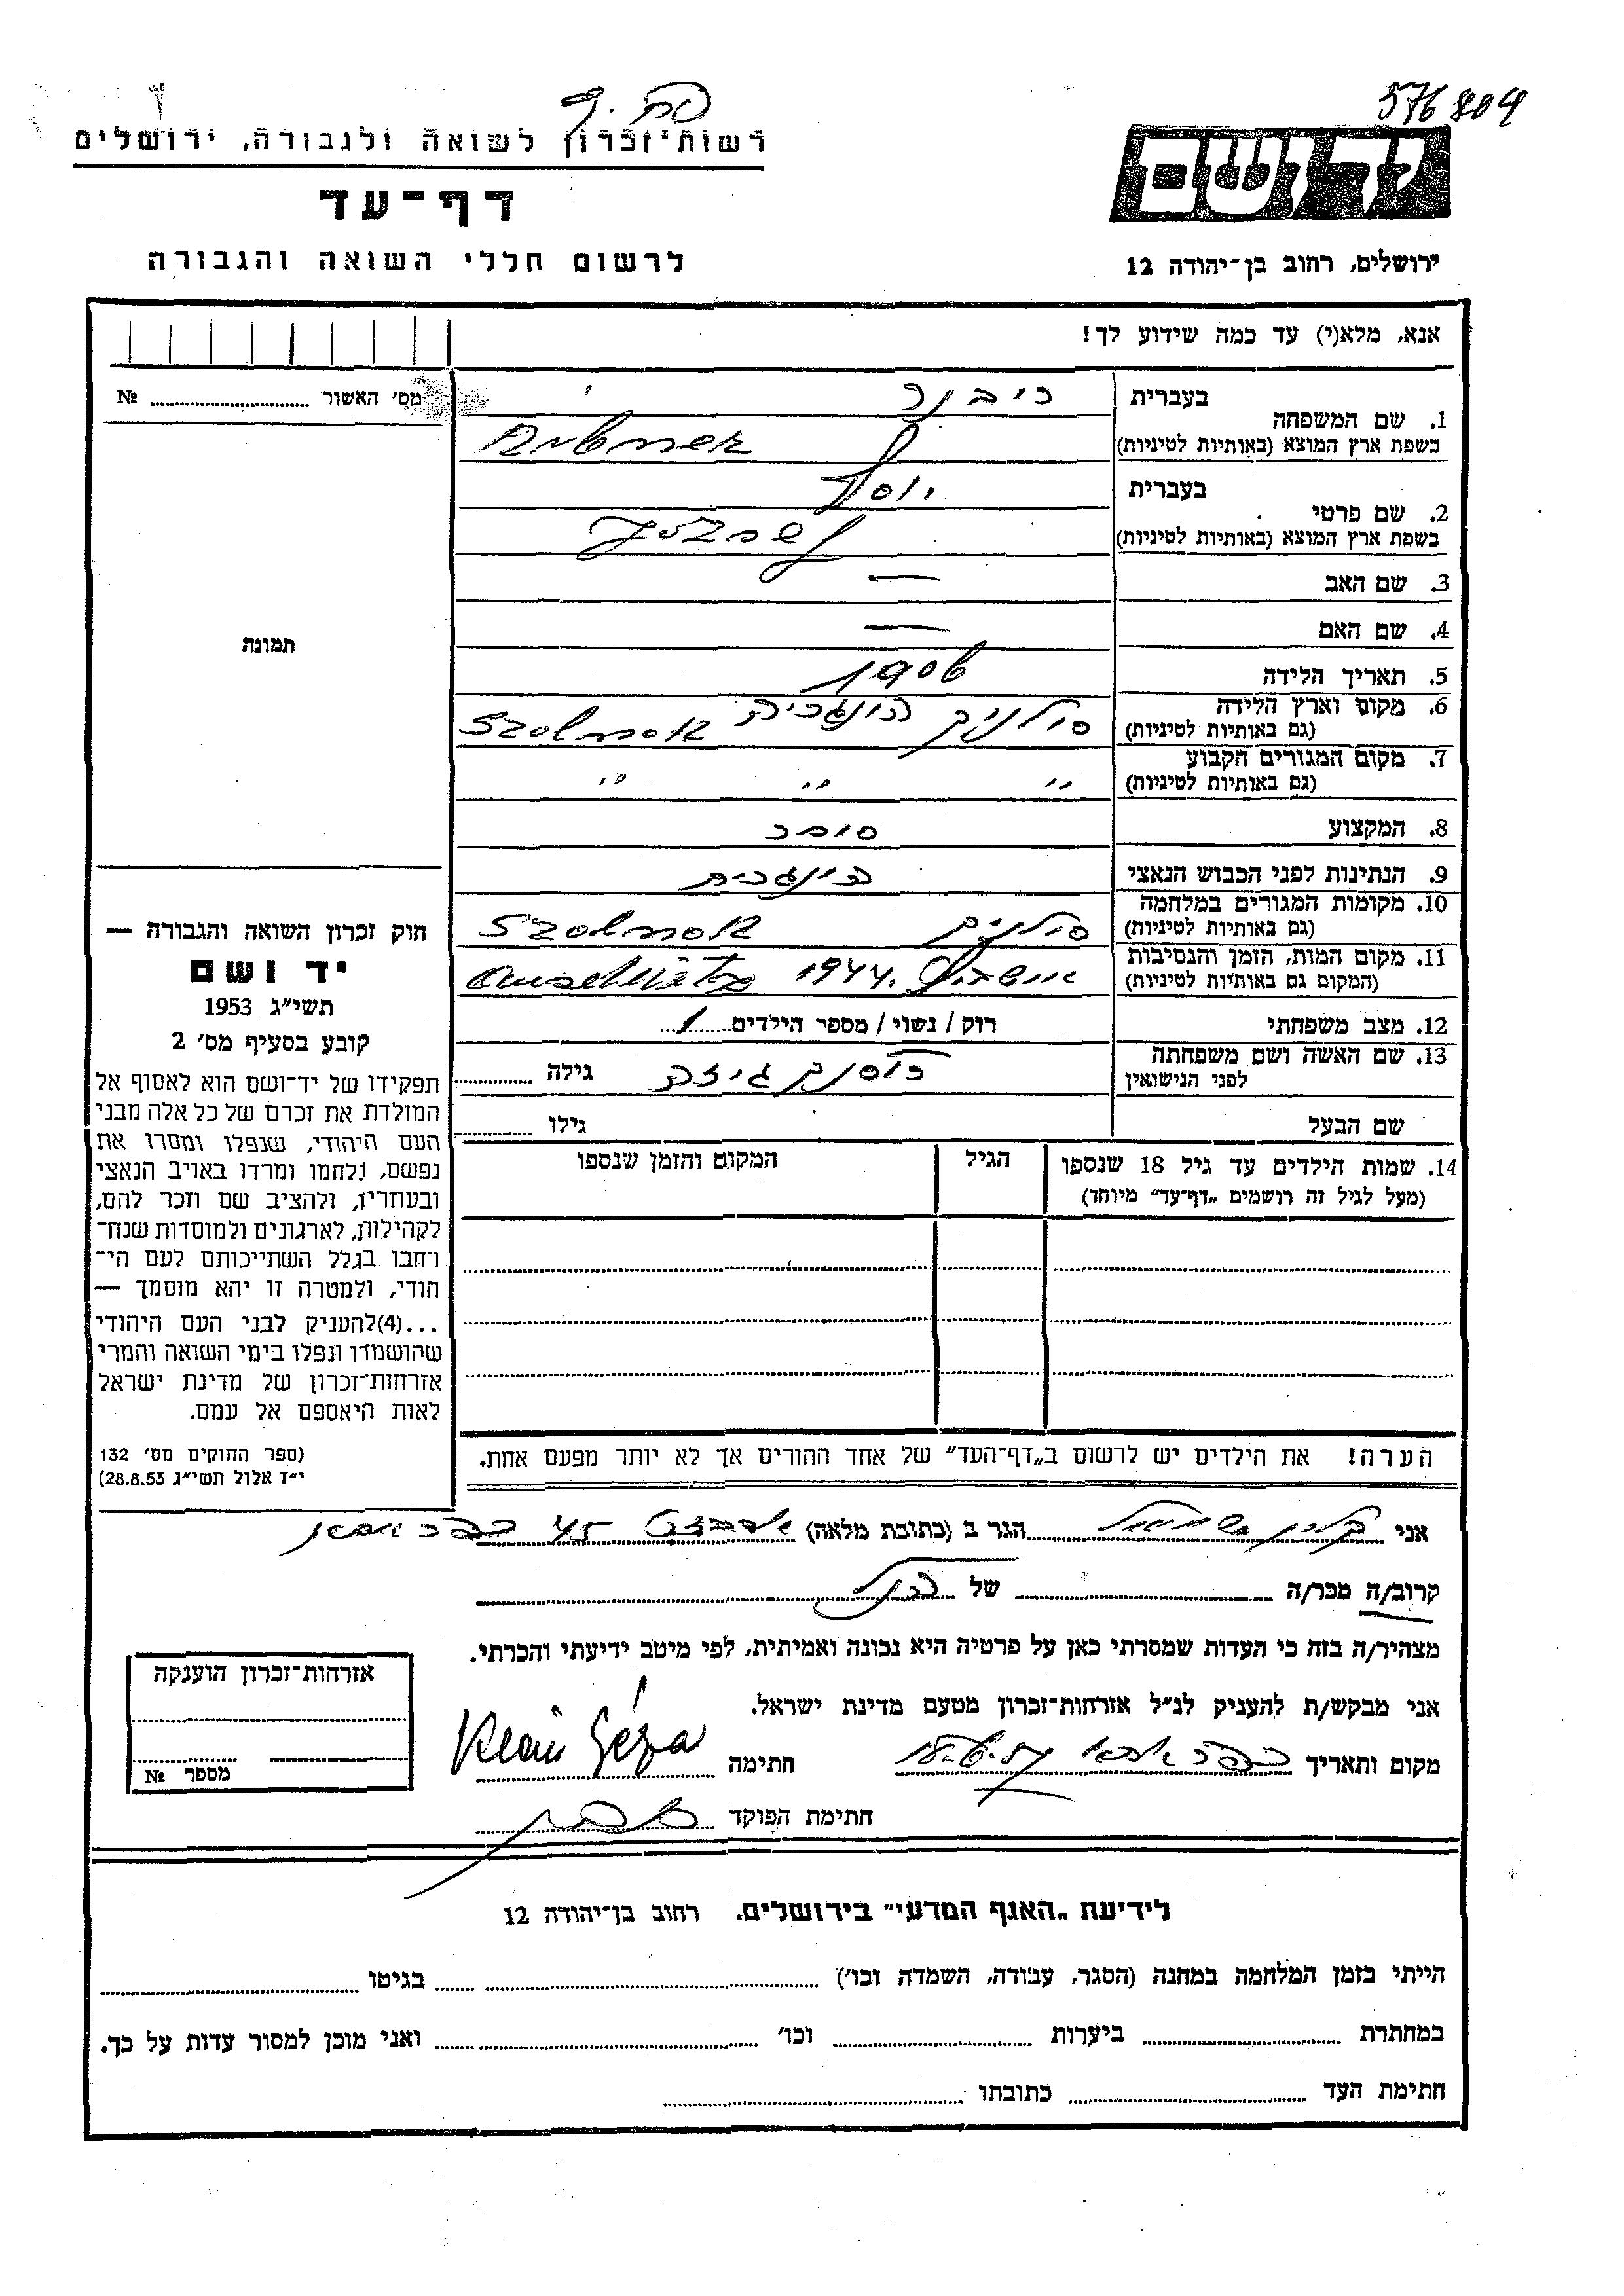 576804
רשות־זכרון לשואה ולגבורה, ירושלים
דף־עד
לרשום חללי השואה והגבורה
ידושם
ירושלים, רחוב בן־יהודה 12
אנא, מלא(י) עד כמה שידוע לך!
מס׳ האשור № 
תמונה
1. שם המשפחה
בעברית
ריבנר
בשפת ארץ המוצא (באותיות לטיניות)
2. שם פרטי
בעברית
יוסף
בשפת ארץ המוצא (באותיות לטיניות) József
3. שם האב —
4. שם האם —
5. תאריך הלידה 1906
6. מקום וארץ הלידה (גם באותיות לטיניות) סולנוק הונגריה Szolnok
7. מקום המגורים הקבוע (גם באותיות לטיניות) " " "
8. המקצוע סוחר
9. הנתינות לפני הכבוש הנאצי הונגרית
10. מקומות המגורים במלחמה (גם באותיות לטיניות) סולנוק Szolnok
11. מקום המות, הזמן והנסיבות (המקום גם באותיות לטיניות) 1944
12. מצב משפחתי רוק / נשוי / מספר הילדים 1
13. שם האשה ושם משפחתה לפני הנישואין גיזה גילה
שם הבעל גילו
14. שמות הילדים עד גיל 18 שנספו
(מעל לגיל זה רושמים „דף־עד״ מיוחד)
הגיל
המקום והזמן שנספו
הערה! את הילדים יש לרשום ב„דף־העד״ של אחד ההורים אך לא יותר מפעם אחת.
חוק זכרון השואה והגבורה —
יד ושם
תשי״ג 1953
קובע בסעיף מס׳ 2
תפקידו של יד־ושם הוא לאסוף אל
המולדת את זכרם של כל אלה מבני
העם היהודי, שנפלו ומסרו את
נפשם, נלחמו ומרדו באויב הנאצי
ובעוזריו, ולהציב שם וזכר להם,
לקהילות, לארגונים ולמוסדות שנח־
רבו בגלל השתייכותם לעם הי־
הודי, ולמטרה זו יהא מוסמך —
...(4)להעניק לבני העם היהודי
שהושמדו ונפלו בימי השואה והמרי
אזרחות־זכרון של מדינת ישראל
לאות היאספם אל עמם.
(ספר החוקים מס׳ 132
י״ז אלול תשי״ג 28.8.53)
אני קליין שמואל הגר ב (כתובת מלאה)
קרוב/ה מכר/ה של
מצהיר/ה בזה כי העדות שמסרתי כאן על פרטיה היא נכונה ואמיתית, לפי מיטב ידיעתי והכרתי.
אני מבקש/ת להעניק לנ״ל אזרחות־זכרון מטעם מדינת ישראל.
מקום ותאריך חתימה Klein Géza
חתימת הפוקד
אזרחות־זכרון הוענקה
מספר №
לידיעת „האגף המדעי״ בירושלים. רחוב בן־יהודה 12
הייתי בזמן המלחמה במחנה (הסגר, עבודה, השמדה וכו׳) בגיטו
במחתרת ביערות וכו׳ ואני מוכן למסור עדות על כך.
חתימת העד כתובתו